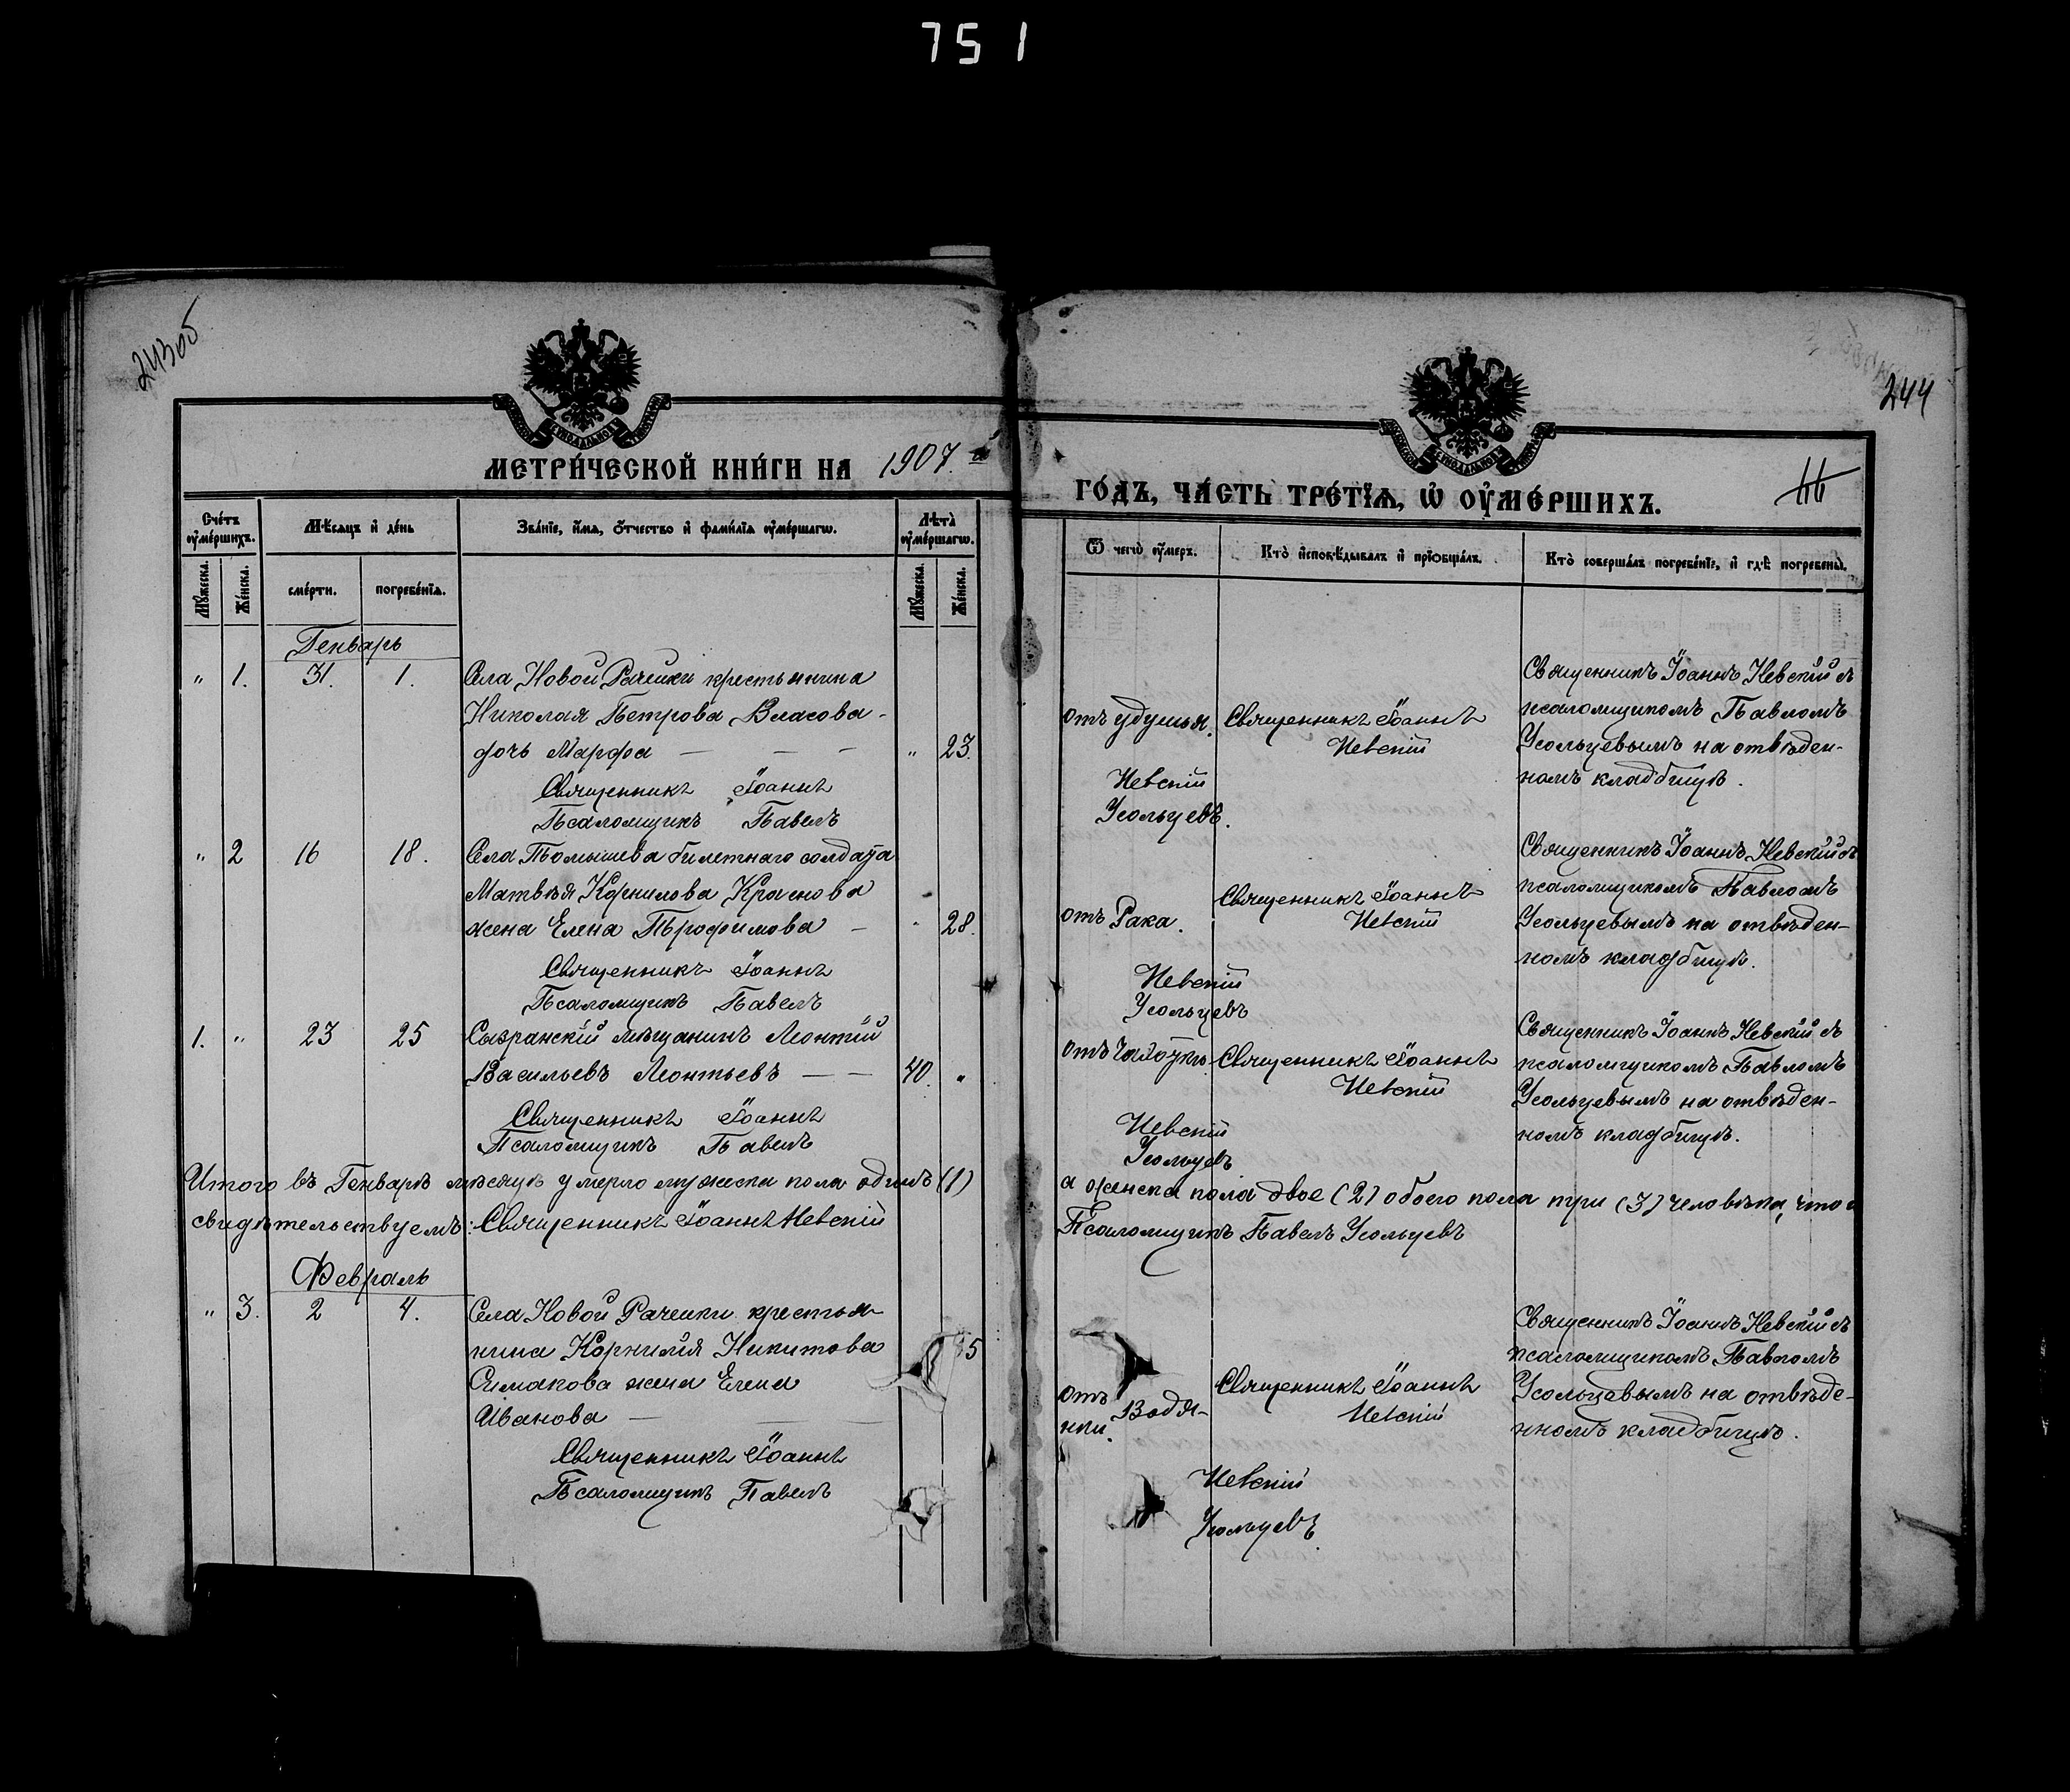 751
243об
244
МЕТРИ́ЧЕСКОЙ КНИ́ГИ НА 1907.й
ГО́ДЪ, ЧА́СТЬ ТРЕ́ТЇѦ, Ѡ҆ ОУ҆МЕ́РШИХЪ.
Сче́тъ оу҆ме́ршихъ.
Мѣ́сѧцъ и҆ де́нь
Зва́нїе, и҆́мѧ, ѻ҆́тчество и҆ фами́лїѧ оу҆ме́ршагѡ.
Лѣ́та оу҆ме́ршагѡ.
Ѿ чегѡ̀ оу҆́меръ.
Кто̀ и҆сповѣ́дывалъ и҆ прїѻбща́лъ.
Кто̀ соверша́лъ погребе́нїе, и҆ гдѣ̀ погребены̀.
Мꙋ́жеска.
Же́нска.
сме́рти.
погребе́нїѧ.
Мꙋ́жеска.
Же́нска.
Генварь
" 1. 31. 1. Села Новой Рачейки крестьянина
Николая Петрова Власова
дочь Марфа — — — " 23.
Священникъ Іоаннъ
Псаломщикъ Павелъ
отъ удушья.
Невскій
Усольцевъ.
Священникъ Іоаннъ
Невскій
Священникъ Іоаннъ Невскій съ
псаломщикомъ Павломъ
Усольцевымъ на отвѣден-
номъ кладбищѣ.
" 2 16 18. Села Томышева билетнаго солдата
Матвѣя Корнилова Краснова
жена Елена Трофимова — " 28.
Священникъ Іоаннъ
Псаломщикъ Павелъ
отъ Рака.
Невскій
Усольцевъ
Священникъ Іоаннъ
Невскій
Священникъ Іоаннъ Невскій съ
псаломщикомъ Павломъ
Усольцевымъ на отвѣден-
номъ кладбищѣ.
1. " 23 25 Сызранскій мѣщанинъ Леонтій
Васильевъ Леонтьевъ — — 40. "
Священникъ Іоаннъ
Псаломщикъ Павелъ
отъ Чахотки
Невскій
Усольцевъ
Священникъ Іоаннъ
Невскій
Священникъ Іоаннъ Невскій съ
псаломщикомъ Павломъ
Усольцевымъ на отвѣден-
номъ кладбищѣ.
Итого въ Генварѣ мѣсяцѣ умерло мужеска пола одинъ (1)
а женска пола двое (2) обоего пола три (3) человѣка, что и
свидѣтельствуемъ: Священникъ Іоаннъ Невскій
Псаломщикъ Павелъ Усольцевъ
Февраль
" 3. 2 4. Села Новой Рачейки крестья-
нина Корнилія Никитова
Симакова жена Елена
Иванова — — —
Священникъ Іоаннъ
Псаломщикъ Павелъ
отъ Водя-
нки.
Невскій
Усольцевъ.
Священникъ Іоаннъ
Невскій
Священникъ Іоаннъ Невскій съ
псаломщикомъ Павломъ
Усольцевымъ на отвѣде-
нномъ кладбищѣ.